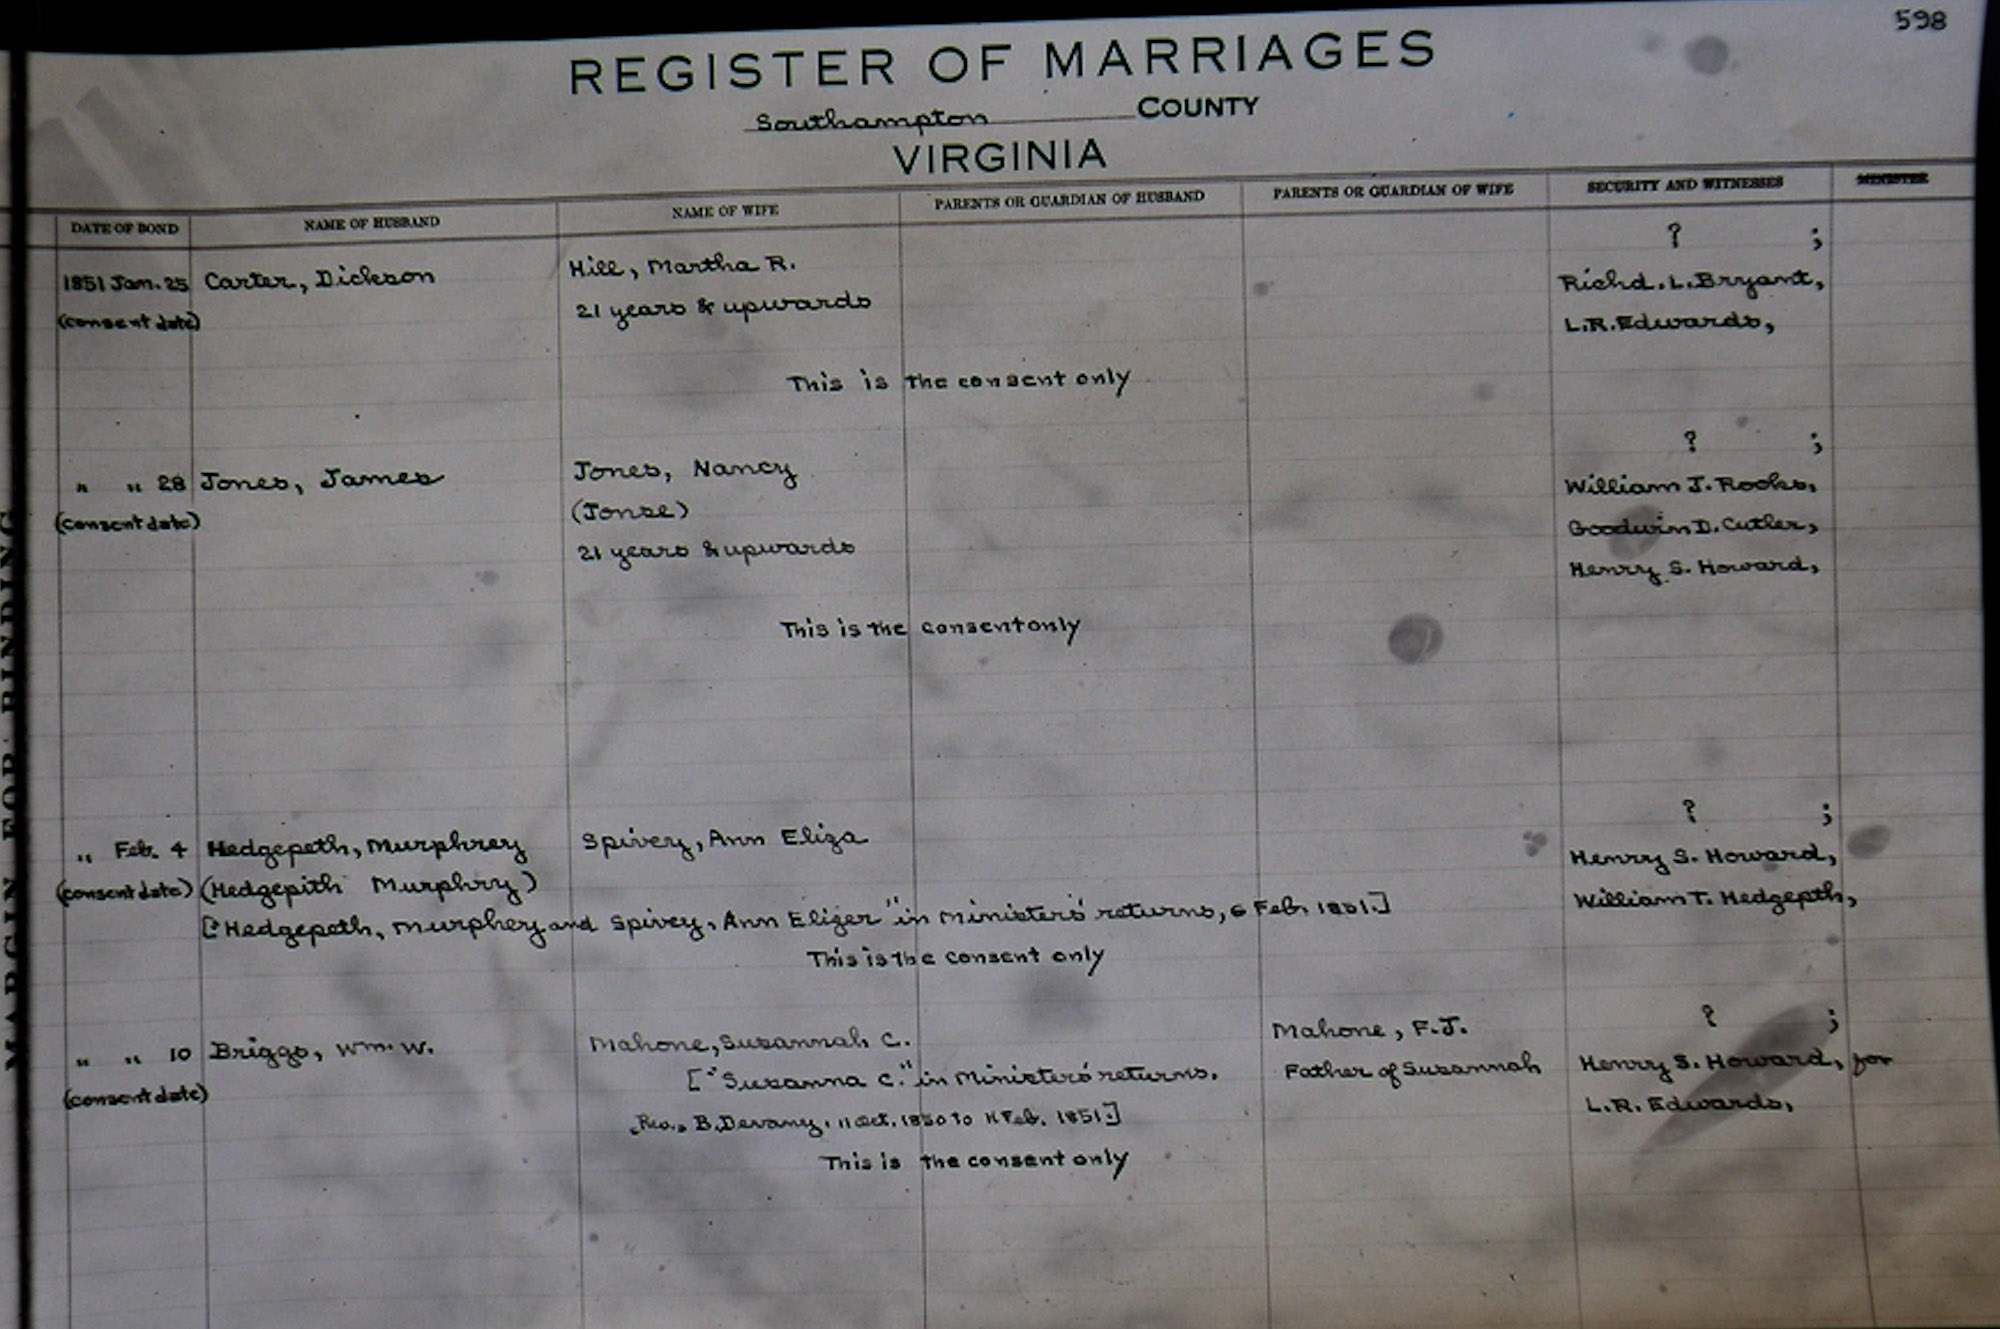 598
REGISTER OF MARRIAGES
Southampton COUNTY
VIRGINIA
DATE OF BOND NAME OF HUSBAND NAME OF WIFE PARENTS OR GUARDIAN OF HUSBAND PARENTS OR GUARDIAN OF WIFE SECURITY AND WITNESSES MINISTER
? ;
1851 Jan. 25 Carter, Dickson Hill, Martha R. Richd. L. Bryant,
(consent date) 21 years & upwards L.R. Edwards,
This is the consent only
? ;
" " 28 Jones, James Jones, Nancy William J. Rooks,
(consent date) (Jonse) Goodwin D. Cutler,
21 years & upwards Henry S. Howard,
This is the consent only
? ;
" Feb. 4 Hedgepeth, Murphrey Spivey, Ann Eliza Henry S. Howard,
(consent date) (Hedgepith Murphry) William T. Hedgepth,
["Hedgepeth, Murphey and Spivey, Ann Elizer" in Ministers' returns, 6 Feb. 1851.]
This is the consent only
? ;
" " 10 Briggs, Wm. W. Mahone, Susannah C. Mahone, F.J. Henry S. Howard, for
(consent date) ["Susanna C." in Ministers' returns, Father of Susannah L.R. Edwards,
Rev. B. Devany, 11 Oct. 1850 to 11 Feb. 1851.]
This is the consent only
MARGIN FOR BINDING